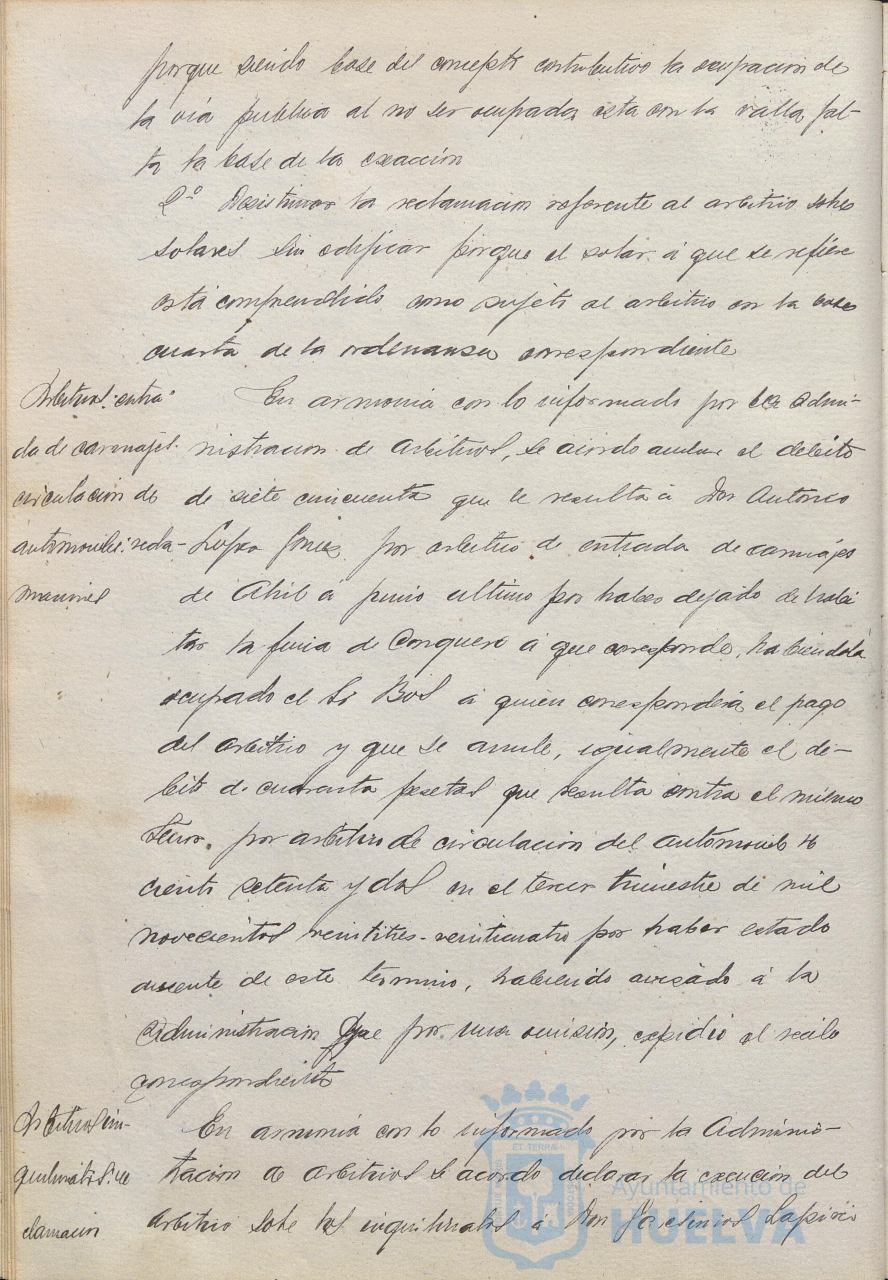 porque siendo base del concepto contributivo la ocupacion de
la via publica al no ser ocupada esta con la valla fal-
ta la base de la exacción
2º Desestimar la reclamacion referente al arbitrio sobre
solares sin edificar porque el solar á que se refiere
está comprendido como sujeto al arbitrio en la base
cuarta de la ordenanza correspondiente
Arbitrios: entra-
da de carruajes.
circulacion de
automoviles: recla-
maciones
En armonia con lo informado por la Admi-
nistracion de Arbitrios, se acordo anular el debito
de siete cincuenta que le resulta á Don Antonio
Lopez Gomez por arbitrio de entrada de carruajes
de Abril a junio ultimo por haber dejado de habi
tar la finca de Conquero á que corresponde, habiendola
ocupado el Sr á quien corresponderá el pago
del arbitrio y que se anule, igualmente el de-
bito de cuarenta pesetas que resulta contra el mismo
Señor, por arbitrio de circulacion del automovil
ciento setenta y dos en el tercer trimestre de mil
novecientos veintitres-veinticuatro por haber estado
ausente de este termino, habiendo avisado á la
Administracion que por una omision, expidio el recibo
correspondiente
Arbitrios in-
quilinatos: re
clamacion
En armonia con lo informado por la Adminis-
tracion de Arbitrios se acordo declarar la exencion del
Arbitrio sobre los inquilinatos á Don
Ayuntamiento de
HUELVA